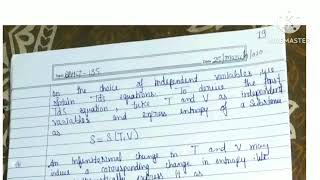 19
MASTER
BPHCT-135
On the choice of independent variables, we
obtain Tds equations. To derive the first
Tds equation, take T and V as independent
variables and express entropy of a substance
as
S = S (T, V)
An infinitesimal change in T and V may
induce a corresponding change in entropy. We
express it as